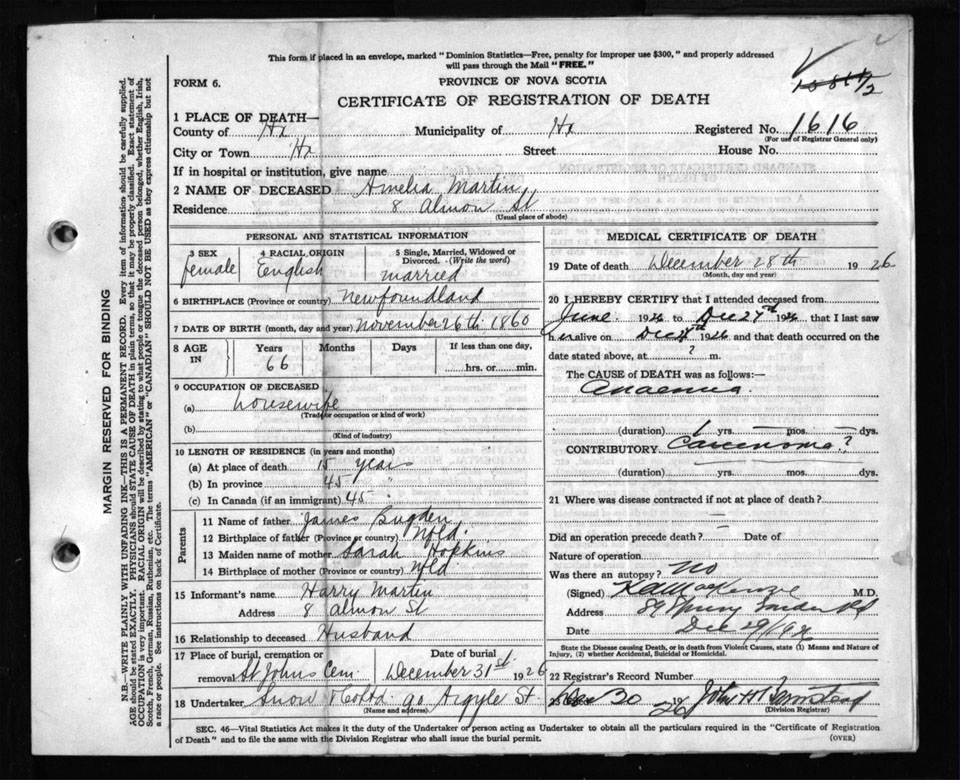 This form if placed in an envelope, marked "Dominion Statistics—Free, penalty for improper use $300," and properly addressed
will pass through the Mail "FREE."
FORM 6.
PROVINCE OF NOVA SCOTIA
CERTIFICATE OF REGISTRATION OF DEATH
1 PLACE OF DEATH—
County of Hx Municipality of Hx Registered No. 1616
(For use of Registrar General only)
City or Town Hx Street House No.
If in hospital or institution, give name
2 NAME OF DECEASED Amelia Martin
Residence 8 Almon St
(Usual place of abode)
PERSONAL AND STATISTICAL INFORMATION
3 SEX 4 RACIAL ORIGIN 5 Single, Married, Widowed or
Divorced. (Write the word)
female English married
6 BIRTHPLACE (Province or country) Newfoundland
7 DATE OF BIRTH (month, day and year) November 26th 1860
8 AGE IN Years Months Days If less than one day,
66 hrs. or min.
9 OCCUPATION OF DECEASED
(a) housewife
(Trade or occupation or kind of work)
(b)
(Kind of industry)
10 LENGTH OF RESIDENCE (in years and months)
(a) At place of death 15 years
(b) In province 45 "
(c) In Canada (if an immigrant) 45
Parents
11 Name of father James Bugden
12 Birthplace of father (Province or country) Nfld.
13 Maiden name of mother Sarah Hopkins
14 Birthplace of mother (Province or country) Nfld
15 Informant's name Harry Martin
Address 8 Almon St
16 Relationship to deceased Husband
17 Place of burial, cremation or Date of burial
removal St Johns Cem. December 31st 1926
18 Undertaker Snow & Co Ltd 90 Argyle St
(Name and address)
MEDICAL CERTIFICATE OF DEATH
19 Date of death December 28th 1926
(Month, day and year)
20 I HEREBY CERTIFY that I attended deceased from
June 1926 to Dec 27th 1926 that I last saw
her alive on Dec 1926 and that death occurred on the
date stated above, at ? m.
The CAUSE of DEATH was as follows:—
Anaemia
(duration) 1 yrs. mos. dys.
CONTRIBUTORY Carcinoma?
(duration) yrs. mos. dys.
21 Where was disease contracted if not at place of death?
Did an operation precede death? Date of
Nature of operation
Was there an autopsy? No
(Signed) MacKenzie M.D.
Address 89 Spring Garden Rd
Date Dec 29/1926
State the Disease causing Death, or in death from Violent Causes, state (1) Means and Nature of
Injury, (2) whether Accidental, Suicidal or Homicidal.
22 Registrar's Record Number
Dec 30 1926 John H
(Division Registrar)
SEC. 46—Vital Statistics Act makes it the duty of the Undertaker or person acting as Undertaker to obtain all the particulars required in the "Certificate of Registration
of Death" and to file the same with the Division Registrar who shall issue the burial permit.
(OVER)
MARGIN RESERVED FOR BINDING
N.B.—WRITE PLAINLY WITH UNFADING INK—THIS IS A PERMANENT RECORD. Every item of information should be carefully supplied.
AGE should be stated EXACTLY. PHYSICIANS should STATE CAUSE OF DEATH in plain terms, so that it may be properly classified. Exact statement of
OCCUPATION is very important. RACIAL ORIGIN will be described by stating to what people or tongue the deceased person belonged, whether English, Irish,
Scotch, French, German, Russian, Ruthenian, etc. The terms "AMERICAN" or "CANADIAN" SHOULD NOT BE USED as they express citizenship but not
a race or people. See instructions on back of Certificate.